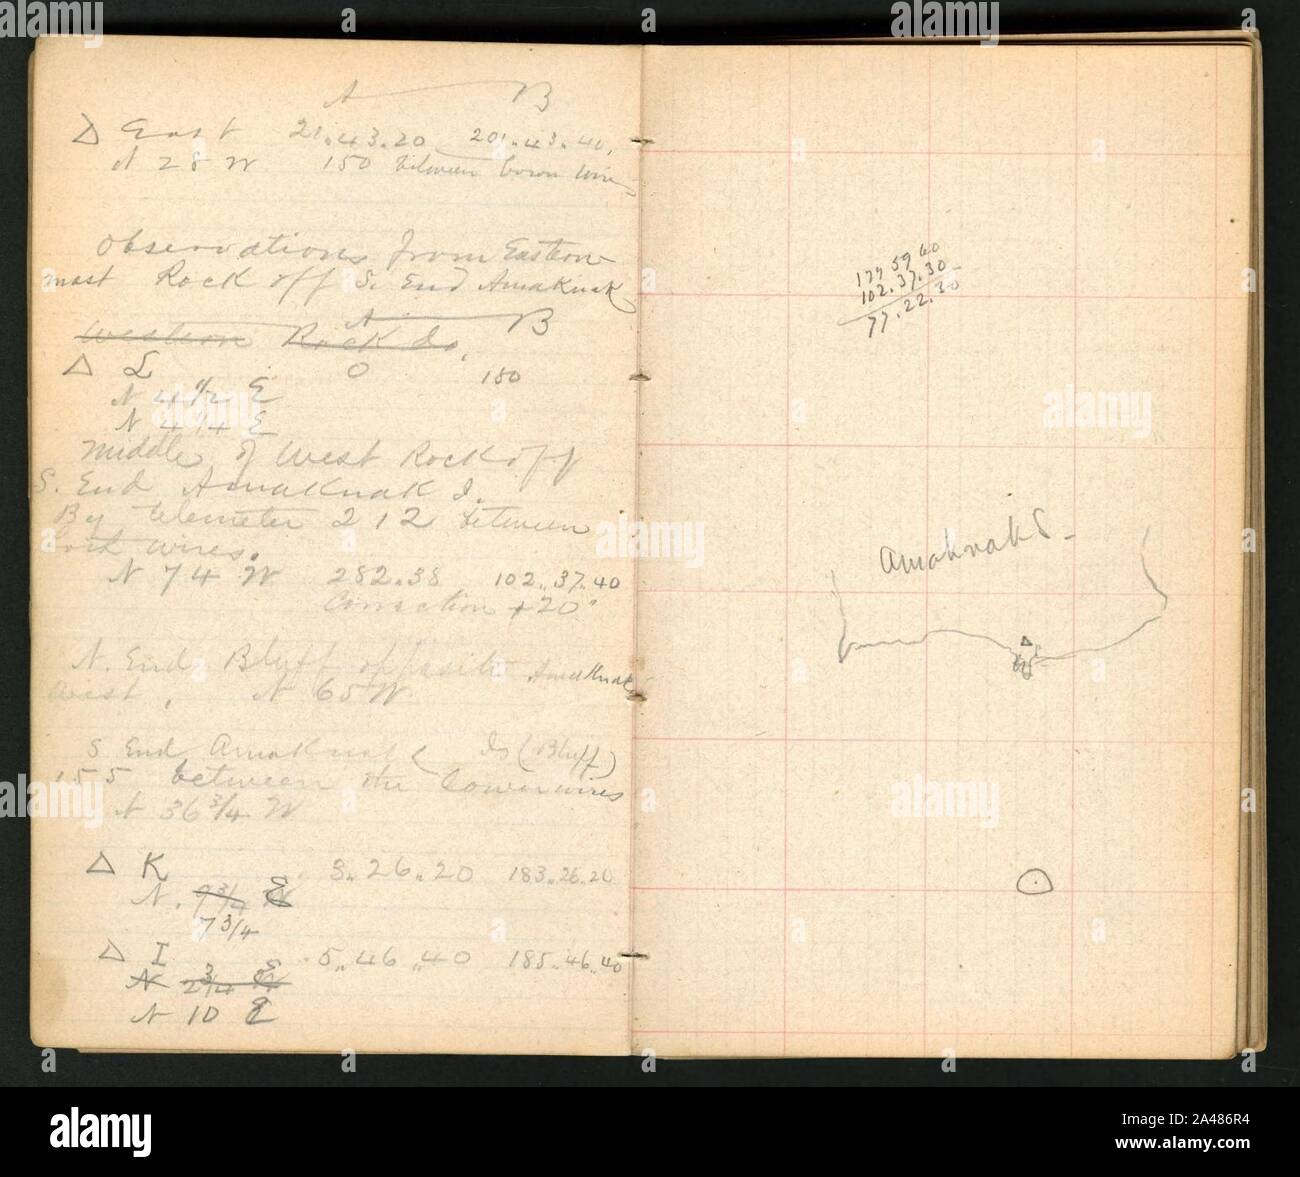 A B
△ East 21..43.20 201..43..40.
N 28 W 150 between
Observations from Eastern
most Rock off S. End Amaknak
A B
Western Rock Do.
△ L 0 180
N 4 1/2 E
N 4 1/4 E
Middle of West Rock off
S. End Amaknak I.
By telemeter 212 between
wires.
N 74 W 282.38 102..37..40
Correction +20"
N. End Bluff opposite Amaknak
West, N 65 W
S End Amaknak Is (Bluff)
155 between the Lower wires
N 36 3/4 W
△ K 3..26..20 183..26..20
N. 9 3/4 E
7 3/4
△ I 5..46..40 185..46..40
N 2 3/4 E
N 10 E
179 59 60
102.37.30
77.22.30
Amaknak S
△
alamy
Image ID: 2A486R4
www.alamy.com